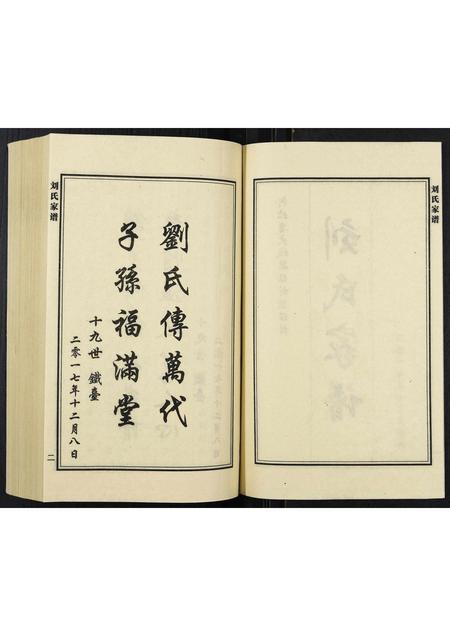 刘氏家谱
劉氏傳萬代
子孫福滿堂
十九世 鐵臺
二零一七年十二月八日
二
刘氏家谱